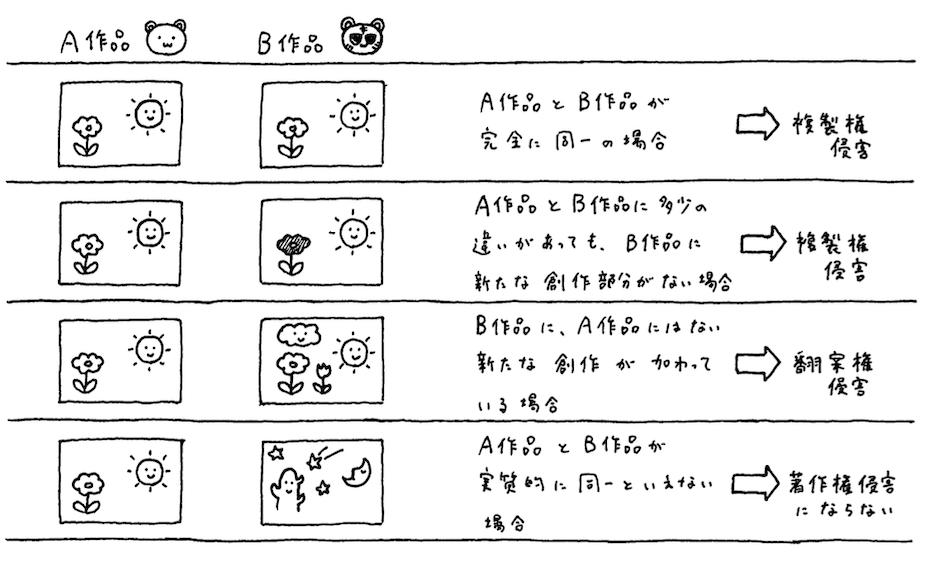 A作品 B作品
A作品とB作品が
完全に同一の場合
複製権
侵害
A作品とB作品に多少の
違いがあっても、B作品に
新たな創作部分がない場合
複製権
侵害
B作品に、A作品にはない
新たな創作が加わって
いる場合
翻案権
侵害
A作品とB作品が
実質的に同一といえない
場合
著作権侵害
にならない